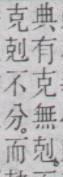 典有克無剋。
克剋不分。而